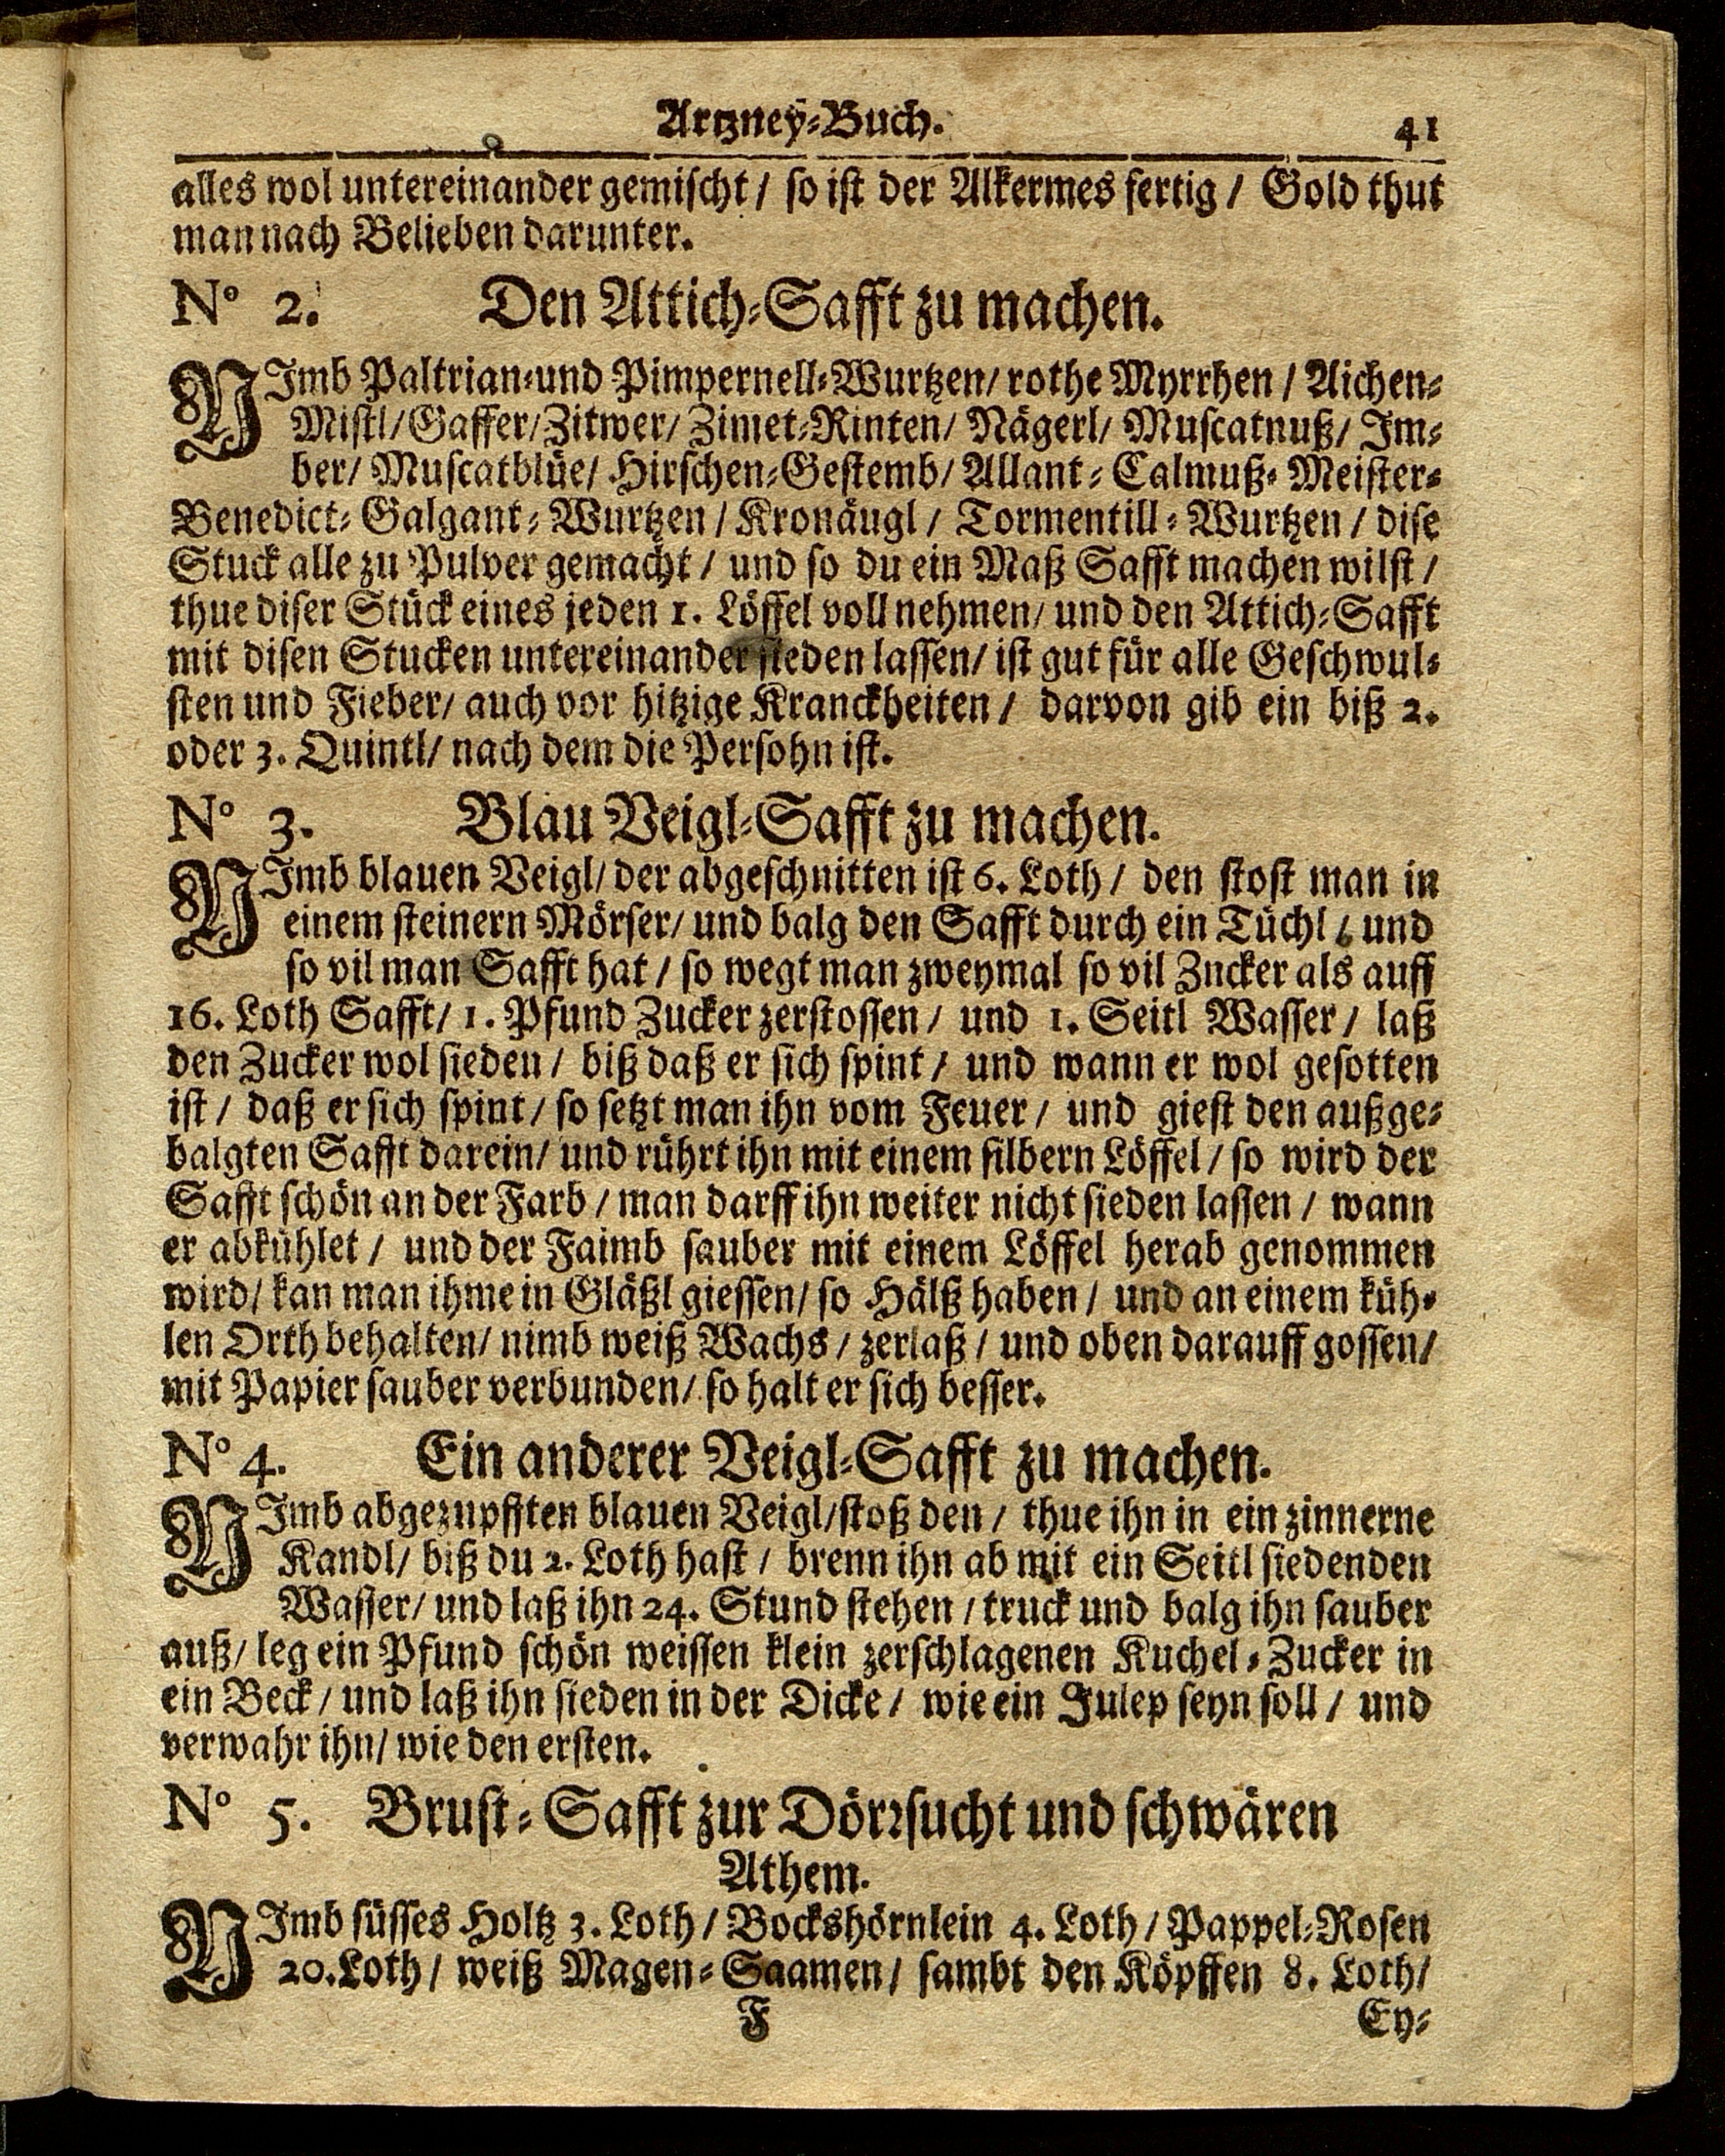 Artzney-Buch. 41
alles wol untereinander gemischt / so ist der Alkermes fertig / Gold thut
man nach Belieben darunter.
No 2. Den Attich-Safft zu machen.
NImb Paltrian-und Pimpernell-Wurtzen/ rothe Myrrhen / Aichen-
Mistl/ Gaffer/ Zitwer/ Zimet-Rinten/ Nägerl/ Muscatnuß/ Im-
ber/ Muscatblüe/ Hirschen-Gestemb/ Allant- Calmuß- Meister-
Benedict- Galgant- Wurtzen / Kronäugl / Tormentill-Wurtzen / dise
Stuck alle zu Pulver gemacht / und so du ein Maß Safft machen wilst /
thue diser Stück eines jeden 1. Löffel voll nehmen/ und den Attich-Safft
mit disen Stucken untereinander sieden lassen/ ist gut für alle Geschwul-
sten und Fieber/ auch vor hitzige Kranckheiten / darvon gib ein biß 2.
oder 3. Quintl/ nach dem die Persohn ist.
No 3. Blau Veigl-Safft zu machen.
NImb blauen Veigl/ der abgeschnitten ist 6. Loth / den stost man in
einem steinern Mörser/ und balg den Safft durch ein Tüchl / und
so vil man Safft hat / so wegt man zweymal so vil Zucker als auff
16. Loth Safft/ 1. Pfund Zucker zerstossen / und 1. Seitl Wasser / laß
den Zucker wol sieden / biß daß er sich spint / und wann er wol gesotten
ist / daß er sich spint / so setzt man ihn vom Feuer / und giest den außge-
balgten Safft darein/ und rührt ihn mit einem silbern Löffel / so wird der
Safft schön an der Farb / man darff ihn weiter nicht sieden lassen / wann
er abkühlet / und der Faimb sauber mit einem Löffel herab genommen
wird/ kan man ihme in Gläßl giessen/ so Hälß haben / und an einem küh-
len Orth behalten/ nimb weiß Wachs / zerlaß / und oben darauff gossen/
mit Papier sauber verbunden/ so halt er sich besser.
No 4. Ein anderer Veigl-Safft zu machen.
NImb abgezupfften blauen Veigl/ stoß den / thue ihn in ein zinnerne
Kandl/ biß du 2. Loth hast / brenn ihn ab mit ein Seitl siedenden
Wasser/ und laß ihn 24. Stund stehen / truck und balg ihn sauber
auß/ leg ein Pfund schön weissen klein zerschlagenen Kuchel-Zucker in
ein Beck / und laß ihn sieden in der Dicke / wie ein Julep seyn soll / und
verwahr ihn/ wie den ersten.
No 5. Brust-Safft zur Dörrsucht und schwären
Athem.
NImb süsses Holtz 3. Loth / Bockshörnlein 4. Loth / Pappel-Rosen
20. Loth / weiß Magen-Saamen / sambt den Köpffen 8. Loth/
F Ey-